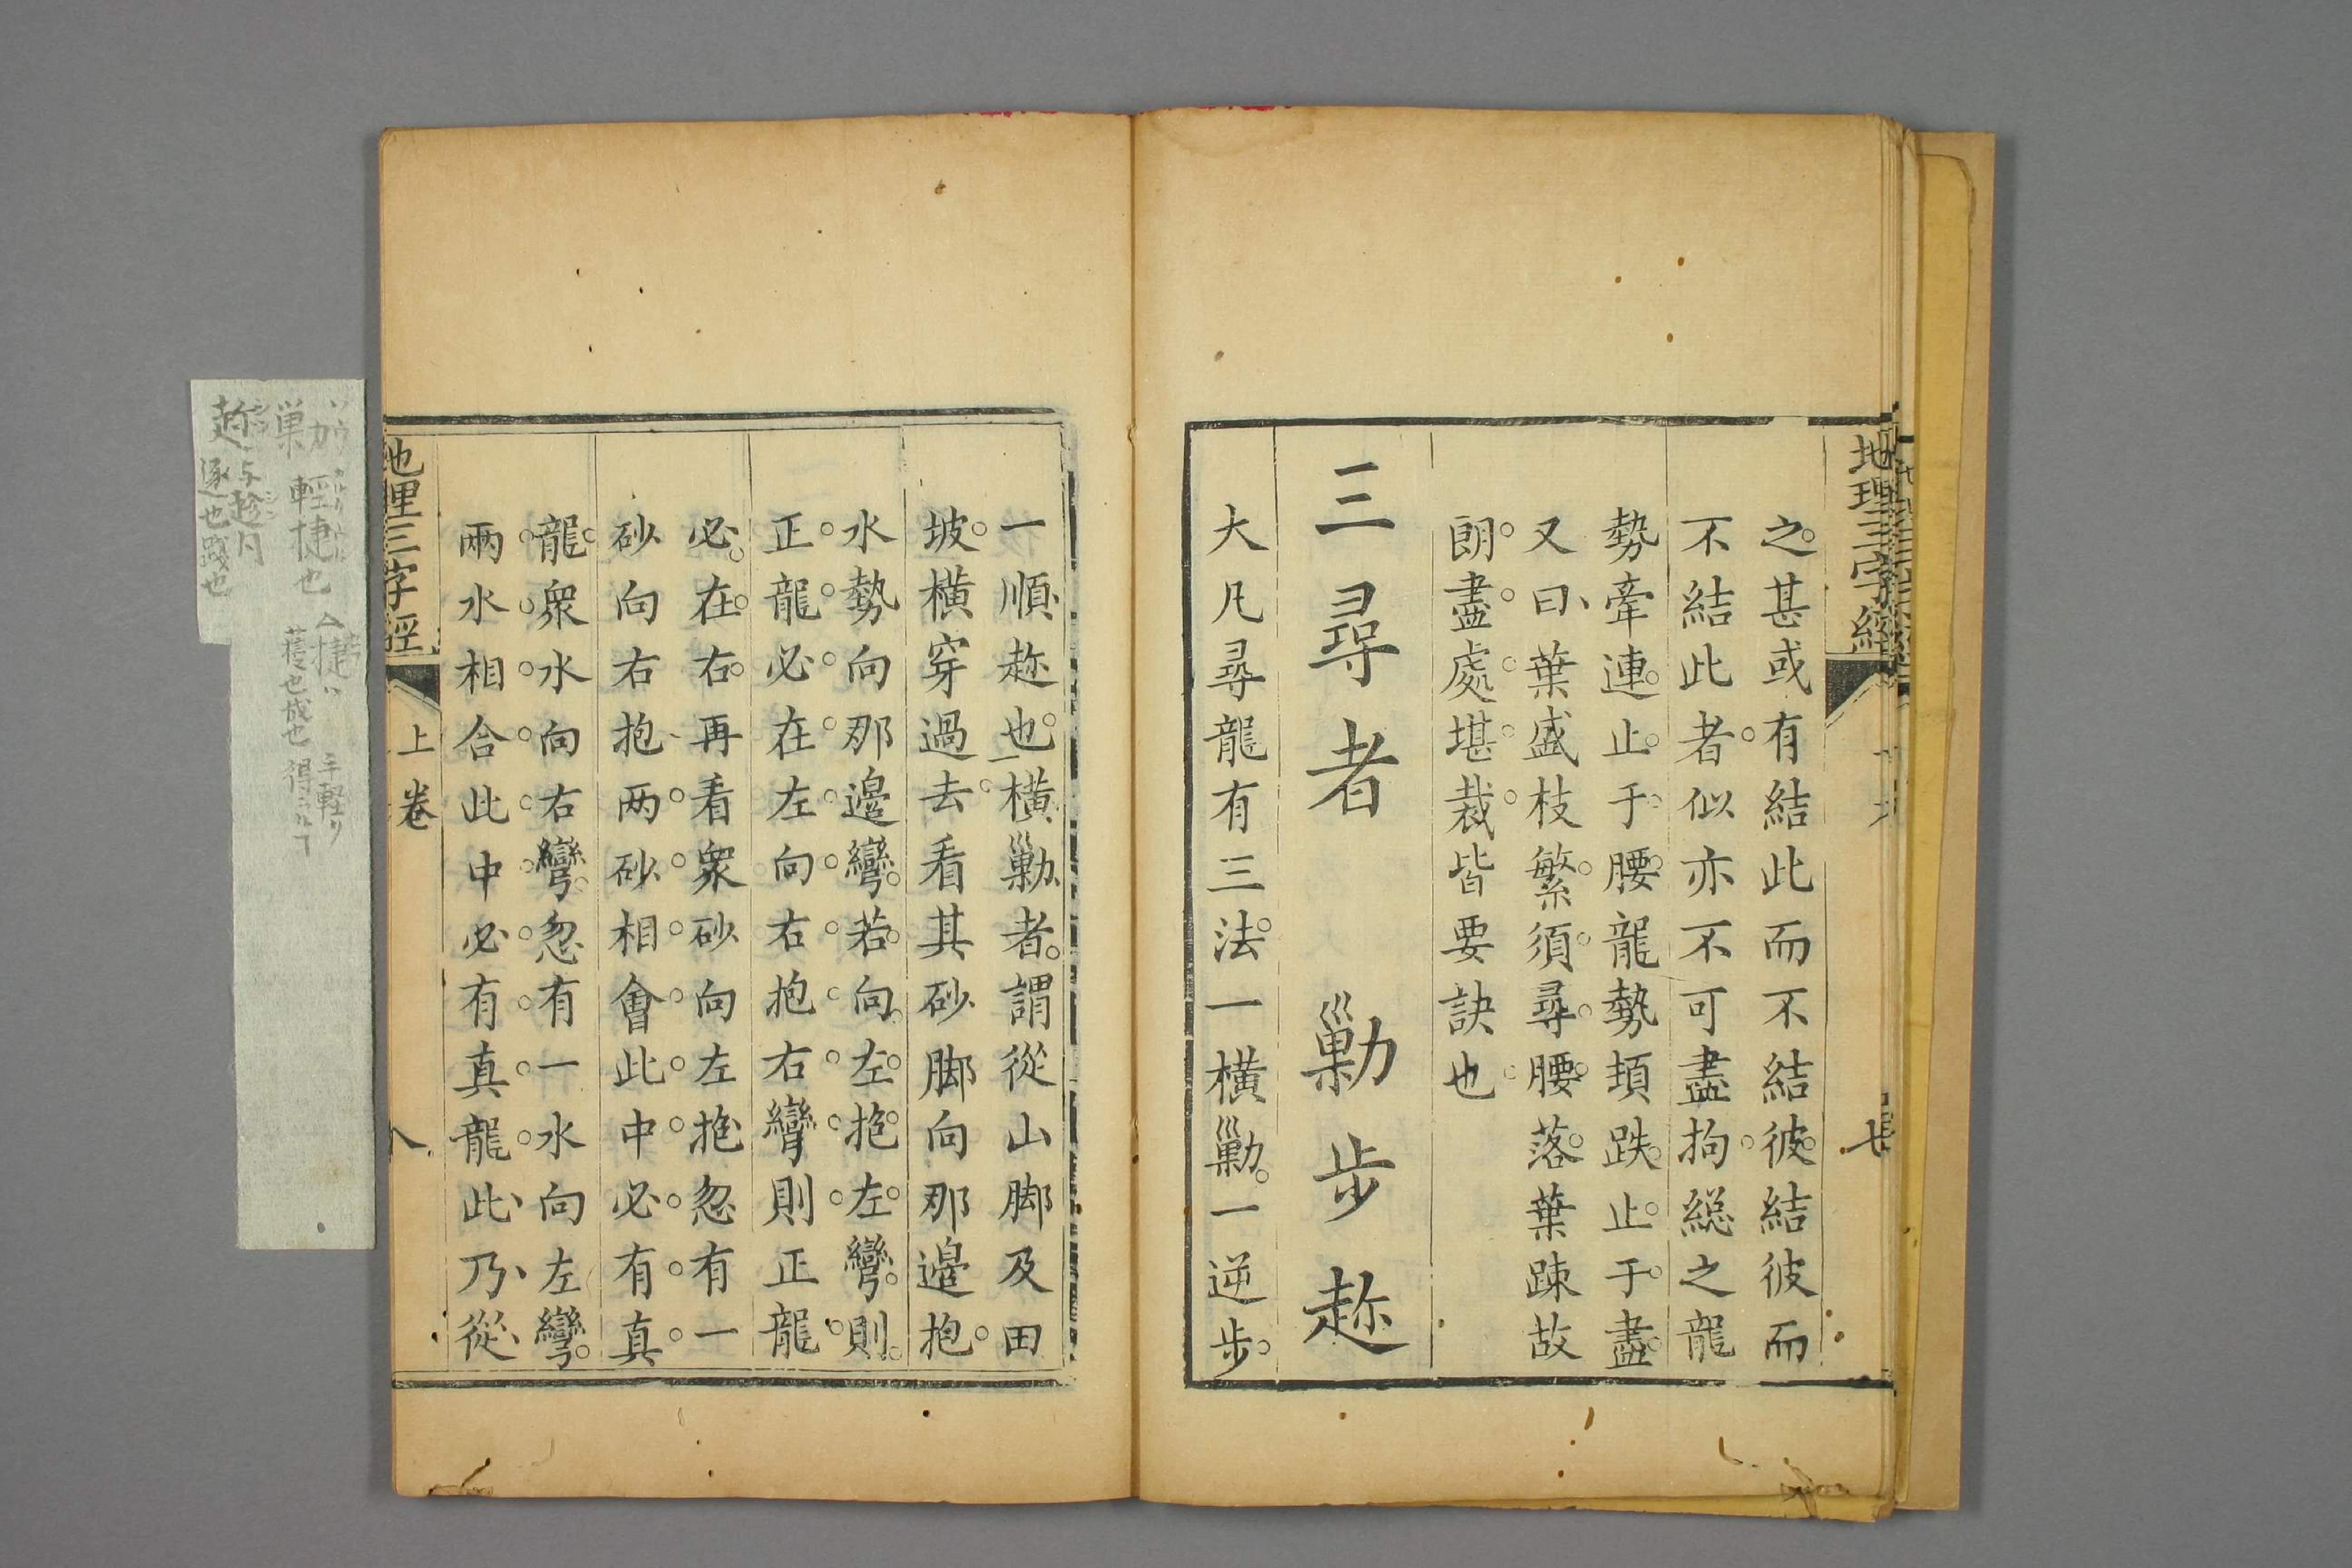 地理三字經
七
之甚或有結此而不結彼結彼而
不結此者似亦不可盡拘総之龍
勢牽連止于腰龍勢頓跌止于盡
又曰葉盛枝繁須尋腰落葉踈故
朗盡處堪裁皆要訣也
三尋者 勦步趂
大凡尋龍有三法一橫勦一逆步
一順趂也一橫勦者謂從山脚及田
坡橫穿過去看其砂脚向那邉抱
水勢向那邉彎若向左抱左彎則
正龍必在左向右抱右彎則正龍
必在右再看衆砂向左抱忽有一
砂向右抱两砂相會此中必有真
龍衆水向右彎忽有一水向左彎
兩水相合此中必有真龍此乃從
地理三字經
上卷
八
輕捷也
獲也成也
手軽リ
逐也踐也